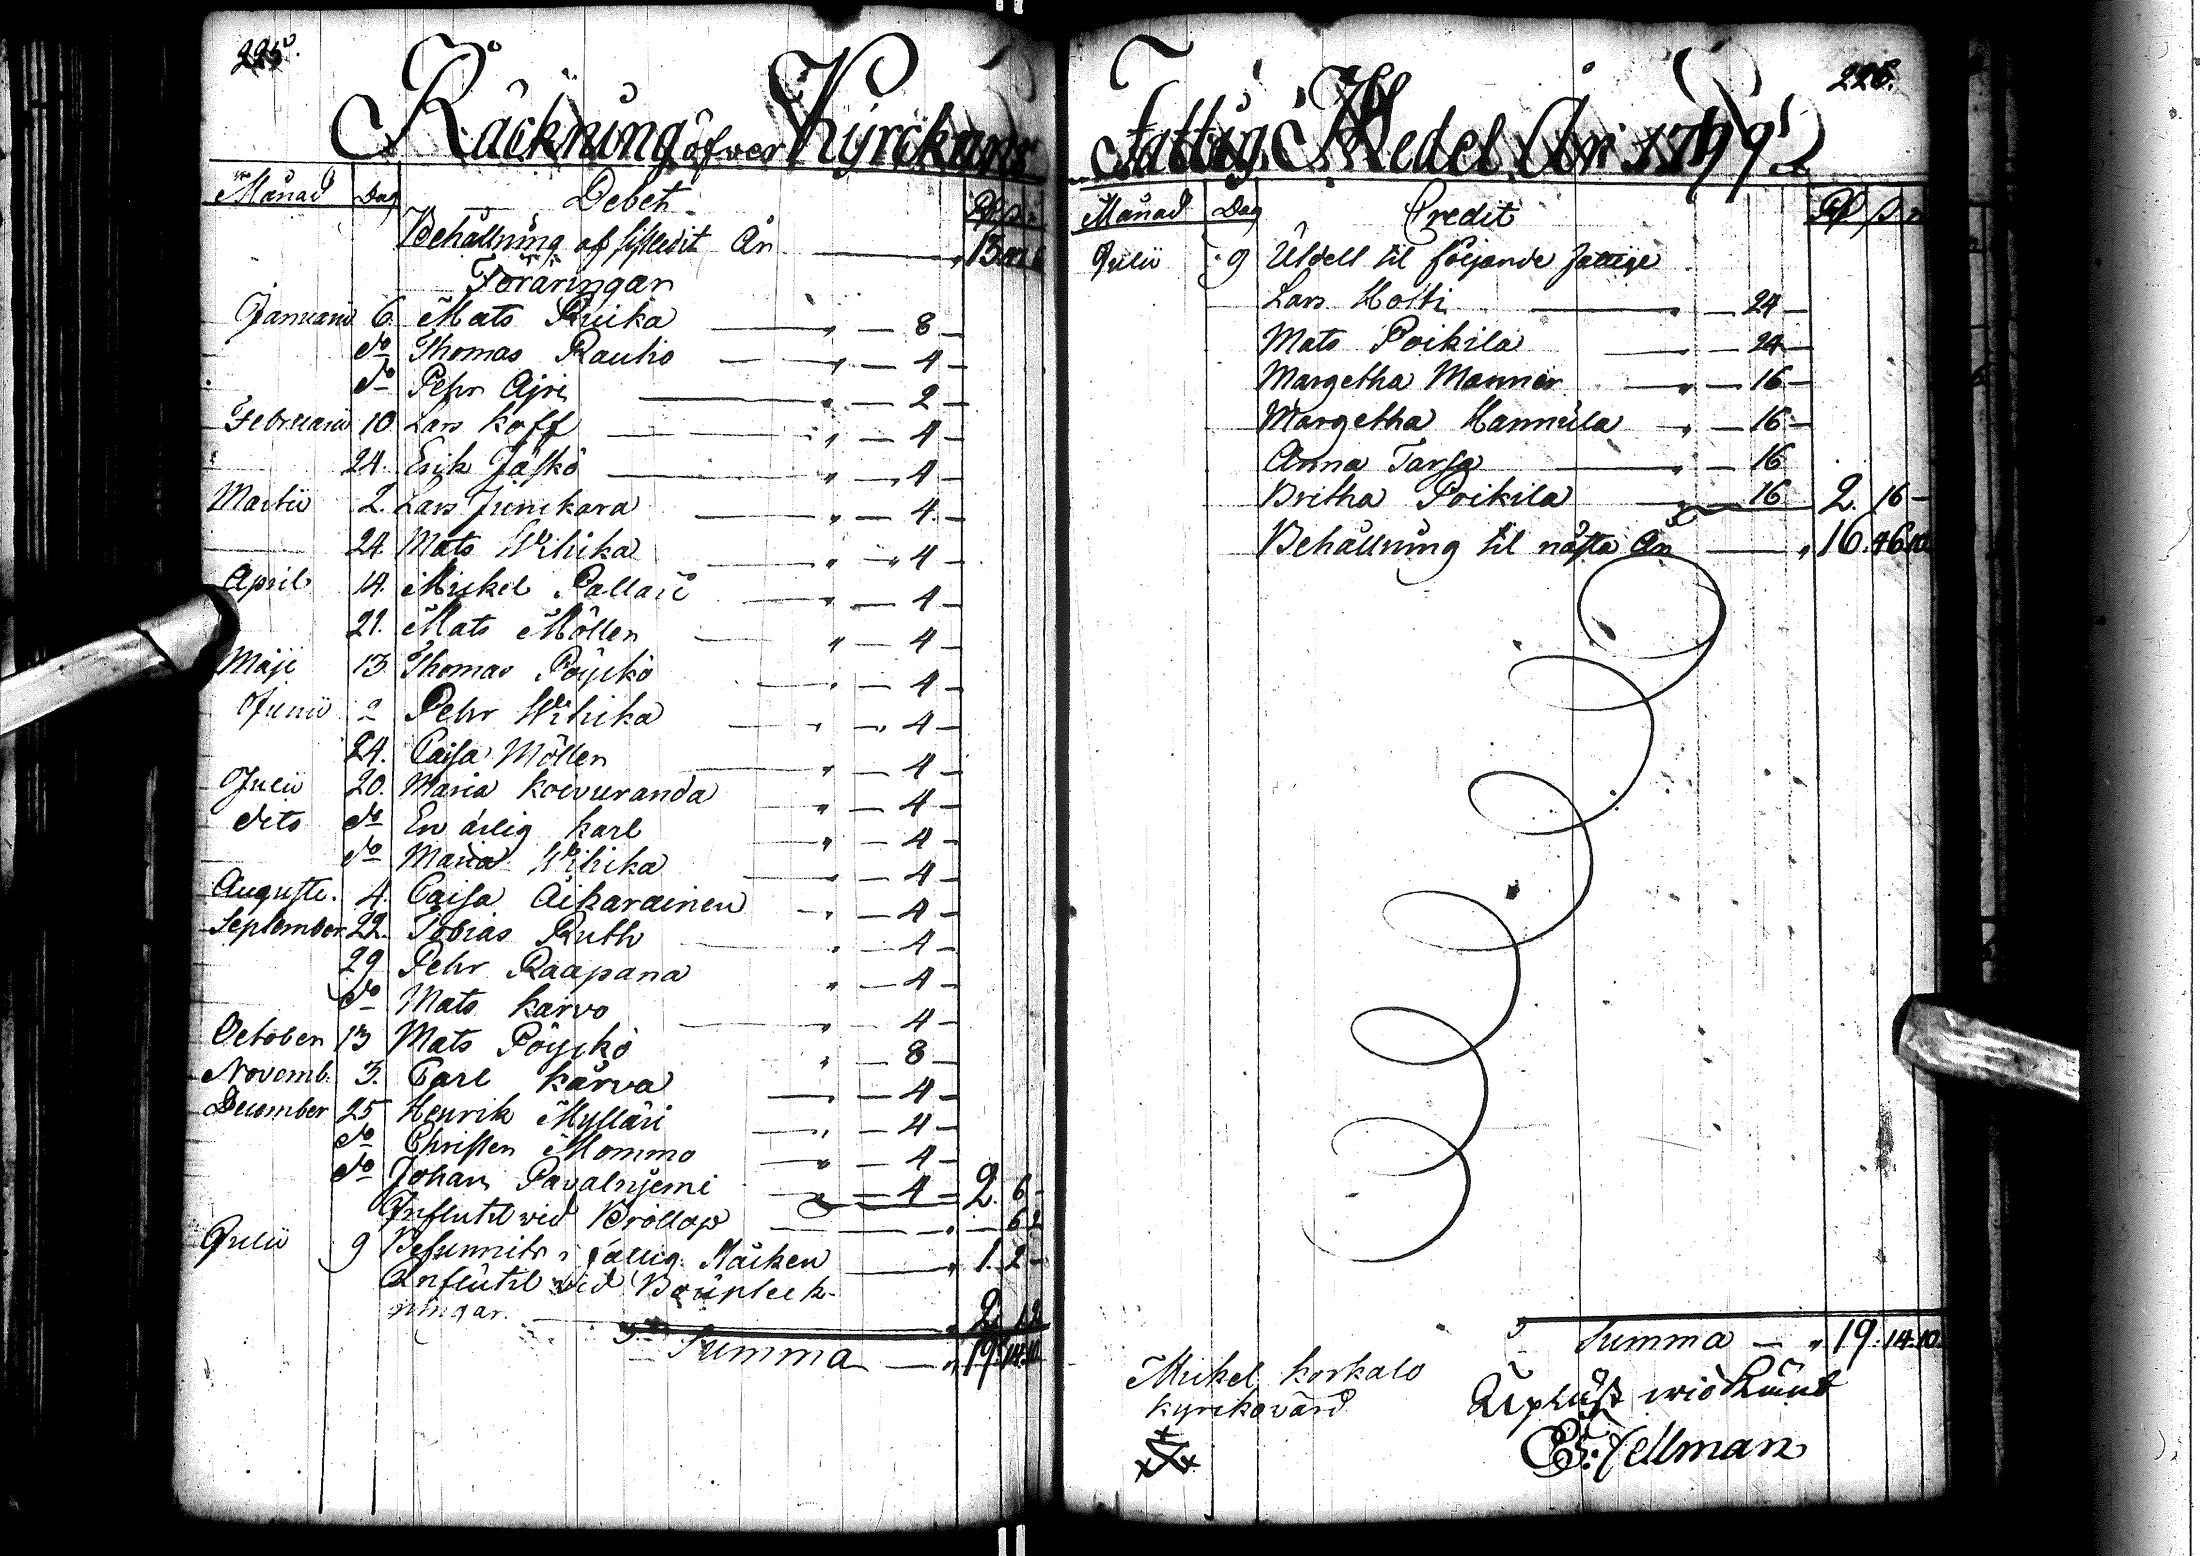 225.
Räckning öfwer Kyrckans
Månad Dag Debet Rd s:
Behållning af sistledit År 13
Föräringar
Januarii 6. Mats Ruika " — 8 —
do Thomas Rautio " — 4 —
do Pehr Ajri " — 2 —
Februarii 10 Lars Koff " — 4 —
24. Erik Jäskö " — 4 —
Martii 2. Lars Junikara " — 4 —
24. Mats Wihika " — 4 —
April 14. Mickel Pallari " — 4 —
21. Mats Möllen " — 4 —
Maji 13 Thomas Pöyckö " — 4 —
Junii 2 Pehr Wihika " — 4 —
24. Caisa Möllen " — 4 —
Julii 20. Maria Koivuranda " — 4 —
dito do En ärlig Karl " — 4 —
do Maria Wihika " — 4 —
Augusti. 4. Caisa Aikarainen " — 4 —
September 22. Tobias Ruth " — 4 —
29 Pehr Raapana " — 4 —
do Mats Karvo " — 4 —
October 13 Mats Pöyckö " — 8 —
Novemb. 3. Carl Kärva " — 4 —
December 25 Henrik Mylläri " — 4 —
do Christen Mommo " — 4 —
do Johan Pavalnjemi " — 4 — 2. 6 —
Influtit wid Bröllop " — 6 2
Julii 9 Befunnits i fattig. Stäcken " 1. 2 —
Influtit wid
ningar. " 2. 12
Summa — " 19. 14. 10
226.
Fattig Medel År 1799
Månad Dag Credit Rd s:
Julii 9 Utdelt til följande fattige
Lars Hotti " — 24 —
Mats Poikila " — 24 —
Margetha Manner " — 16 —
Margetha Hannula " — 16 —
Anna Tarsa " — 16
Britha Poikila " 16 2. 16 —
Behållning til nästa År " 16. 46. 10
Summa — " 19. 14. 10.
Mickel Korkalo
Kyrckovärd
Uplyst
E: Fellman